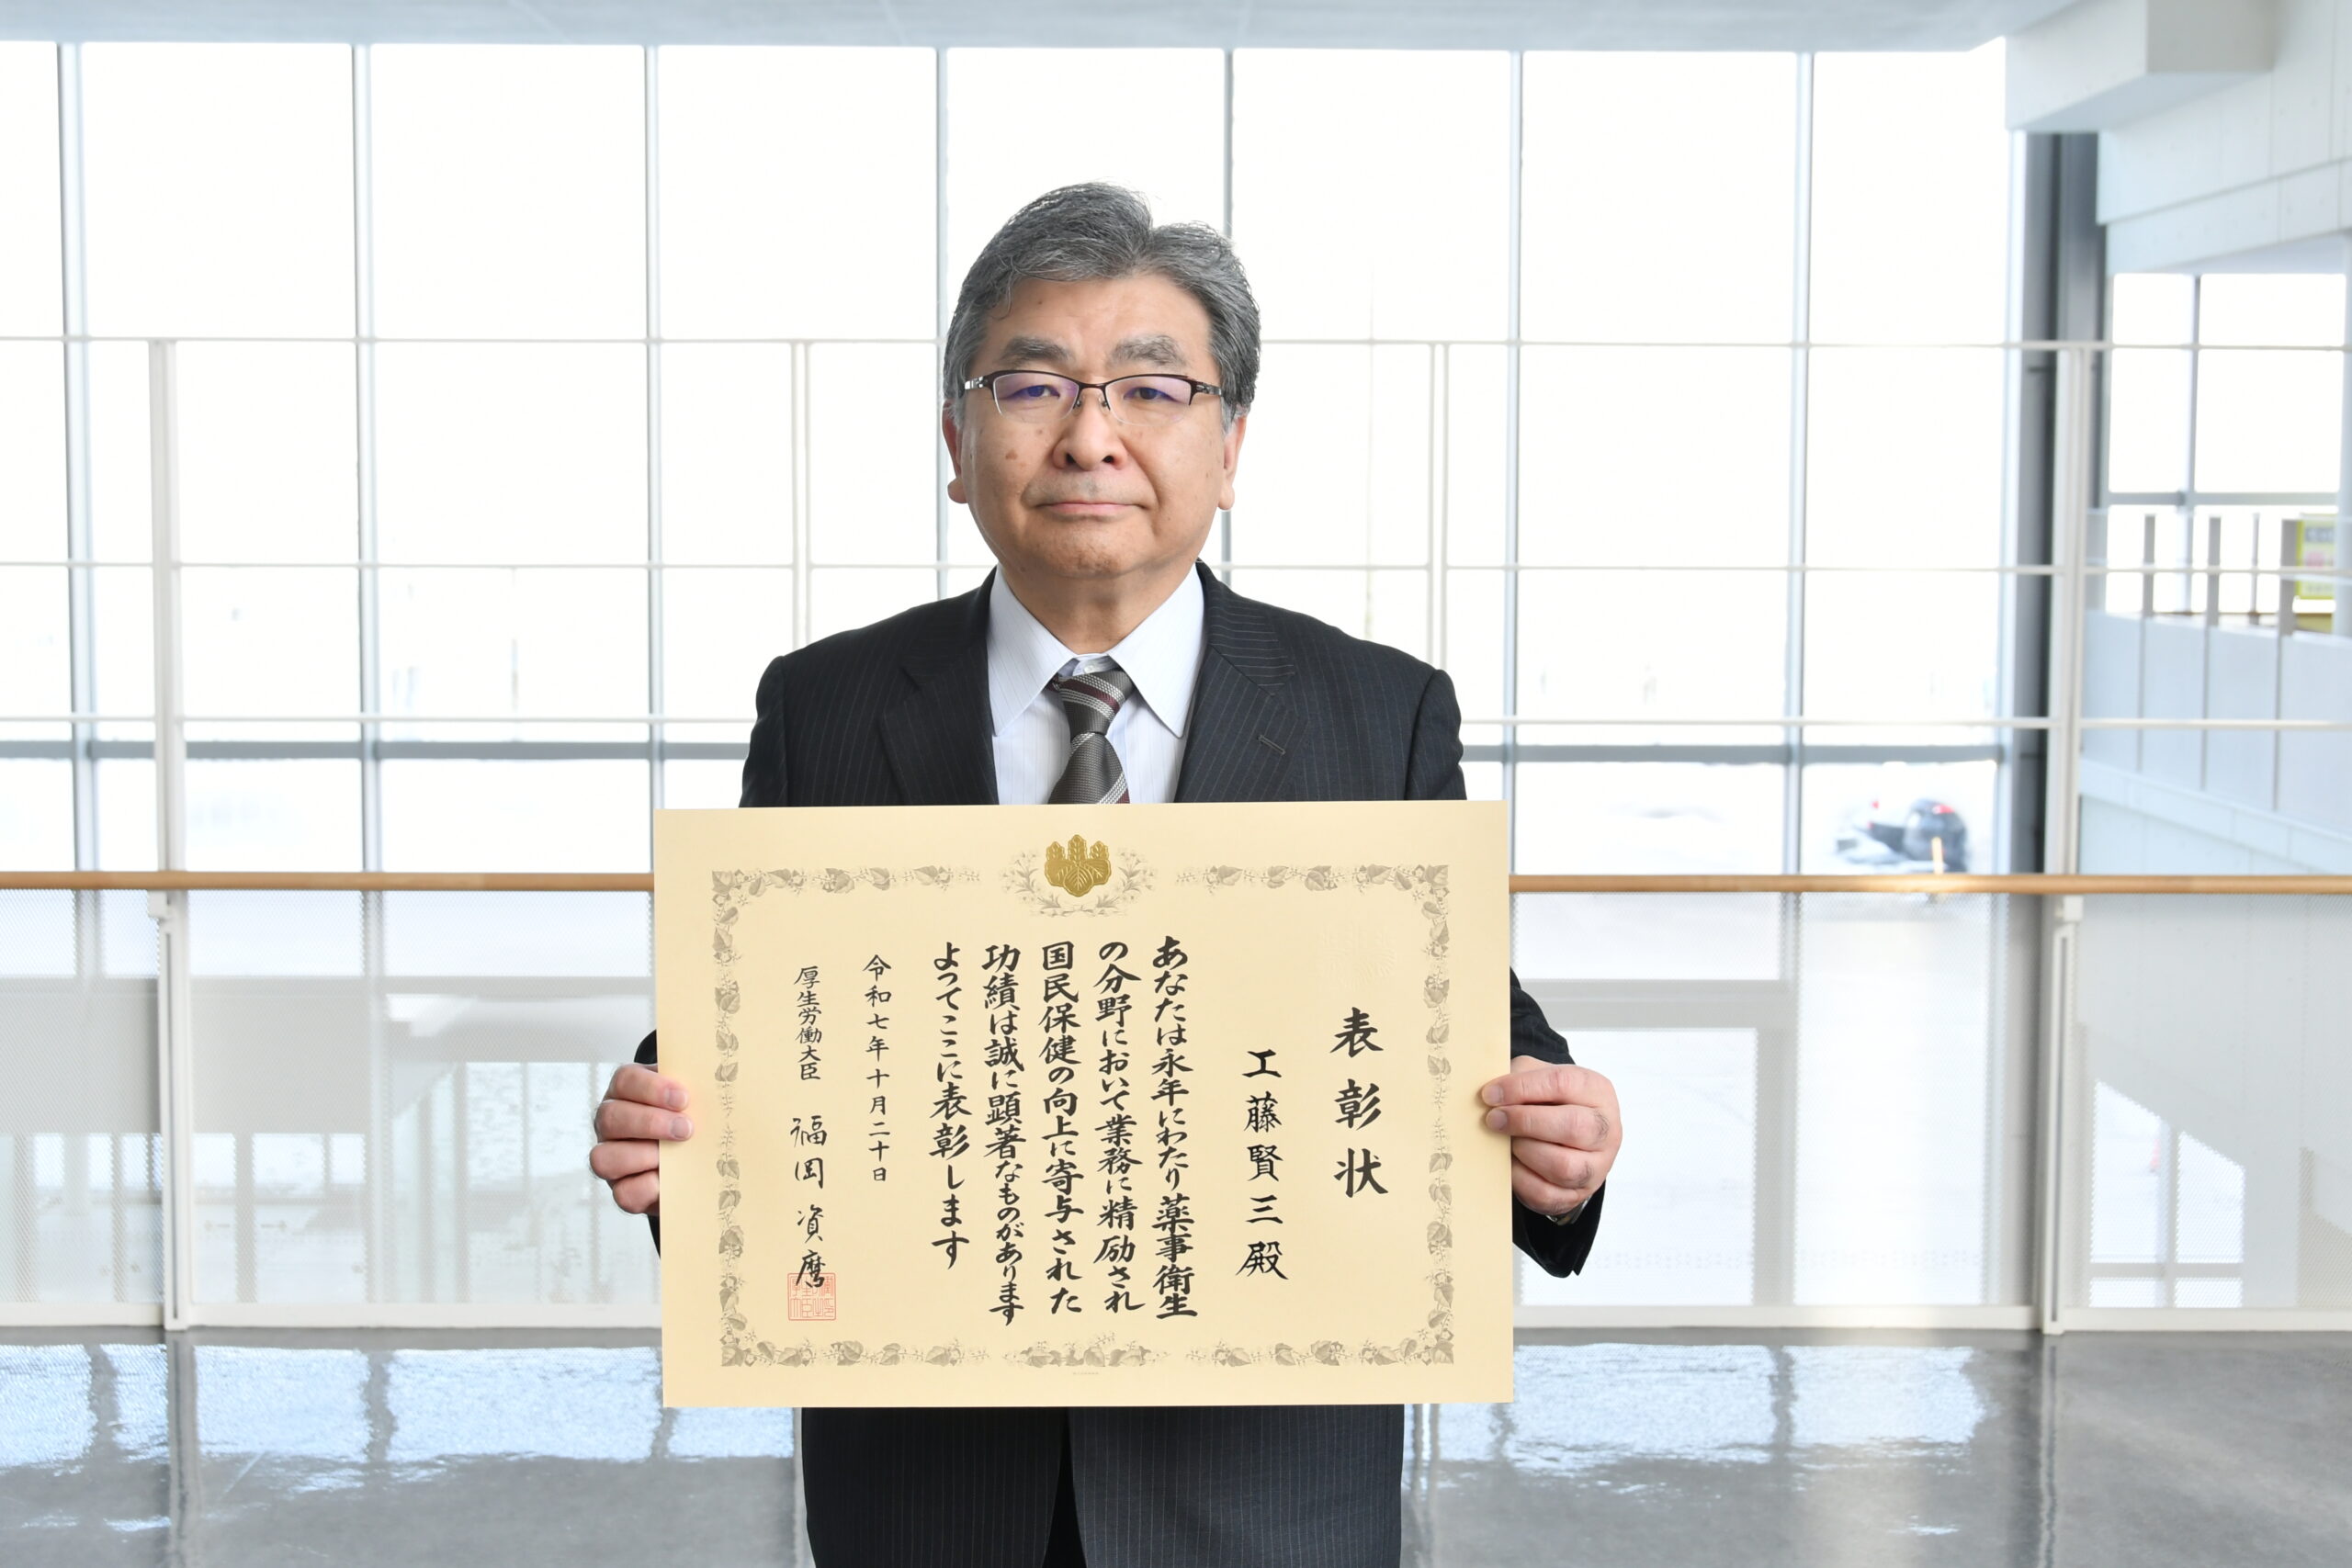 表彰状
工藤賢三殿
あなたは永年にわたり薬事衛生
の分野において業務に精励され
国民保健の向上に寄与された
功績は誠に顕著なものがあります
よってここに表彰します
令和七年十月二十日
厚生労働大臣 福岡資麿